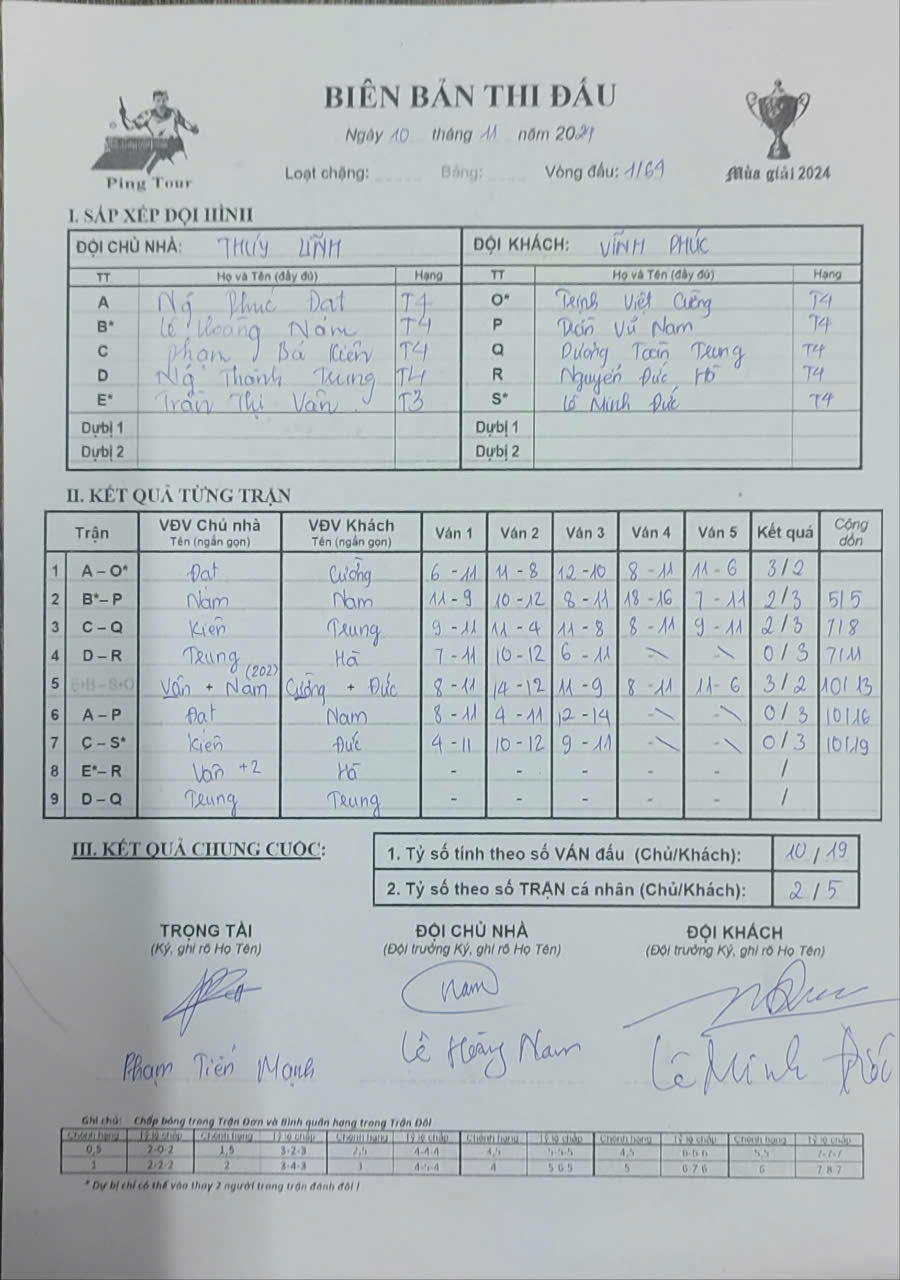 BIÊN BẢN THI ĐẤU
Ngày 10 tháng 11 năm 2024
Ping Tour
Loạt chặng: ..... Bảng: ..... Vòng đấu: 1/64
Mùa giải 2024
I. SẮP XẾP ĐỘI HÌNH
ĐỘI CHỦ NHÀ: THUỲ LĨNH ĐỘI KHÁCH: VĨNH PHÚC
TT Họ và Tên (đầy đủ) Hạng TT Họ và Tên (đầy đủ) Hạng
A Ng Phúc Đạt T4 O* Trịnh Việt Cường T4
B* Lê Hoàng Nam T4 P Trần Vũ Nam T4
C Phạm Bá Kiên T4 Q Dương Toàn Trung T4
D Ng Thành Trung T4 R Nguyễn Đức Hà T4
E* Trần Thị Vân T3 S* Lê Minh Đức T4
Dự bị 1 Dự bị 1
Dự bị 2 Dự bị 2
II. KẾT QUẢ TỪNG TRẬN
Trận VĐV Chủ nhà Tên (ngắn gọn) VĐV Khách Tên (ngắn gọn) Ván 1 Ván 2 Ván 3 Ván 4 Ván 5 Kết quả Cộng dồn
1 A – O* Đạt Cường 6 - 11 11 - 8 12 - 10 8 - 11 11 - 6 3/2
2 B* – P Nam Nam 11 - 9 10 - 12 8 - 11 18 - 16 7 - 11 2/3 5/5
3 C – Q Kiên Trung 9 - 11 11 - 4 11 - 8 8 - 11 9 - 11 2/3 7/8
4 D – R Trung Hà 7 - 11 10 - 12 6 - 11 - - 0/3 7/11
5 E+B – S+O Vân + Nam (202) Cường + Đức 8 - 11 14 - 12 11 - 9 8 - 11 11 - 6 3/2 10/13
6 A – P Đạt Nam 8 - 11 4 - 11 12 - 14 - - 0/3 10/16
7 C – S* Kiên Đức 4 - 11 10 - 12 9 - 11 - - 0/3 10/19
8 E* – R Vân +2 Hà - - - - - /
9 D – Q Trung Trung - - - - - /
III. KẾT QUẢ CHUNG CUỘC:
1. Tỷ số tính theo số VÁN đấu (Chủ/Khách): 10 / 19
2. Tỷ số theo số TRẬN cá nhân (Chủ/Khách): 2 / 5
TRỌNG TÀI ĐỘI CHỦ NHÀ ĐỘI KHÁCH
(Ký, ghi rõ Họ Tên) (Đội trưởng Ký, ghi rõ Họ Tên) (Đội trưởng Ký, ghi rõ Họ Tên)
Nam
Phạm Tiến Mạnh Lê Hoàng Nam Lê Minh Đức
Ghi chú: Chấp bóng trong Trận Đơn và Bình quân hạng trong Trận Đôi
Chênh hạng Tỷ lệ chấp Chênh hạng Tỷ lệ chấp Chênh hạng Tỷ lệ chấp Chênh hạng Tỷ lệ chấp Chênh hạng Tỷ lệ chấp Chênh hạng Tỷ lệ chấp
0,5 2-0-2 1,5 3-2-3 2,5 4-4-4 5-5-5 4,5 6-6-6 5,5 7-7-7
1 2-2-2 2 3-4-3 3 4-5-4 4 5 6 5 5 6 7 6 6 7 8 7
* Dự bị chỉ có thể vào thay 2 người trong trận đánh đôi !